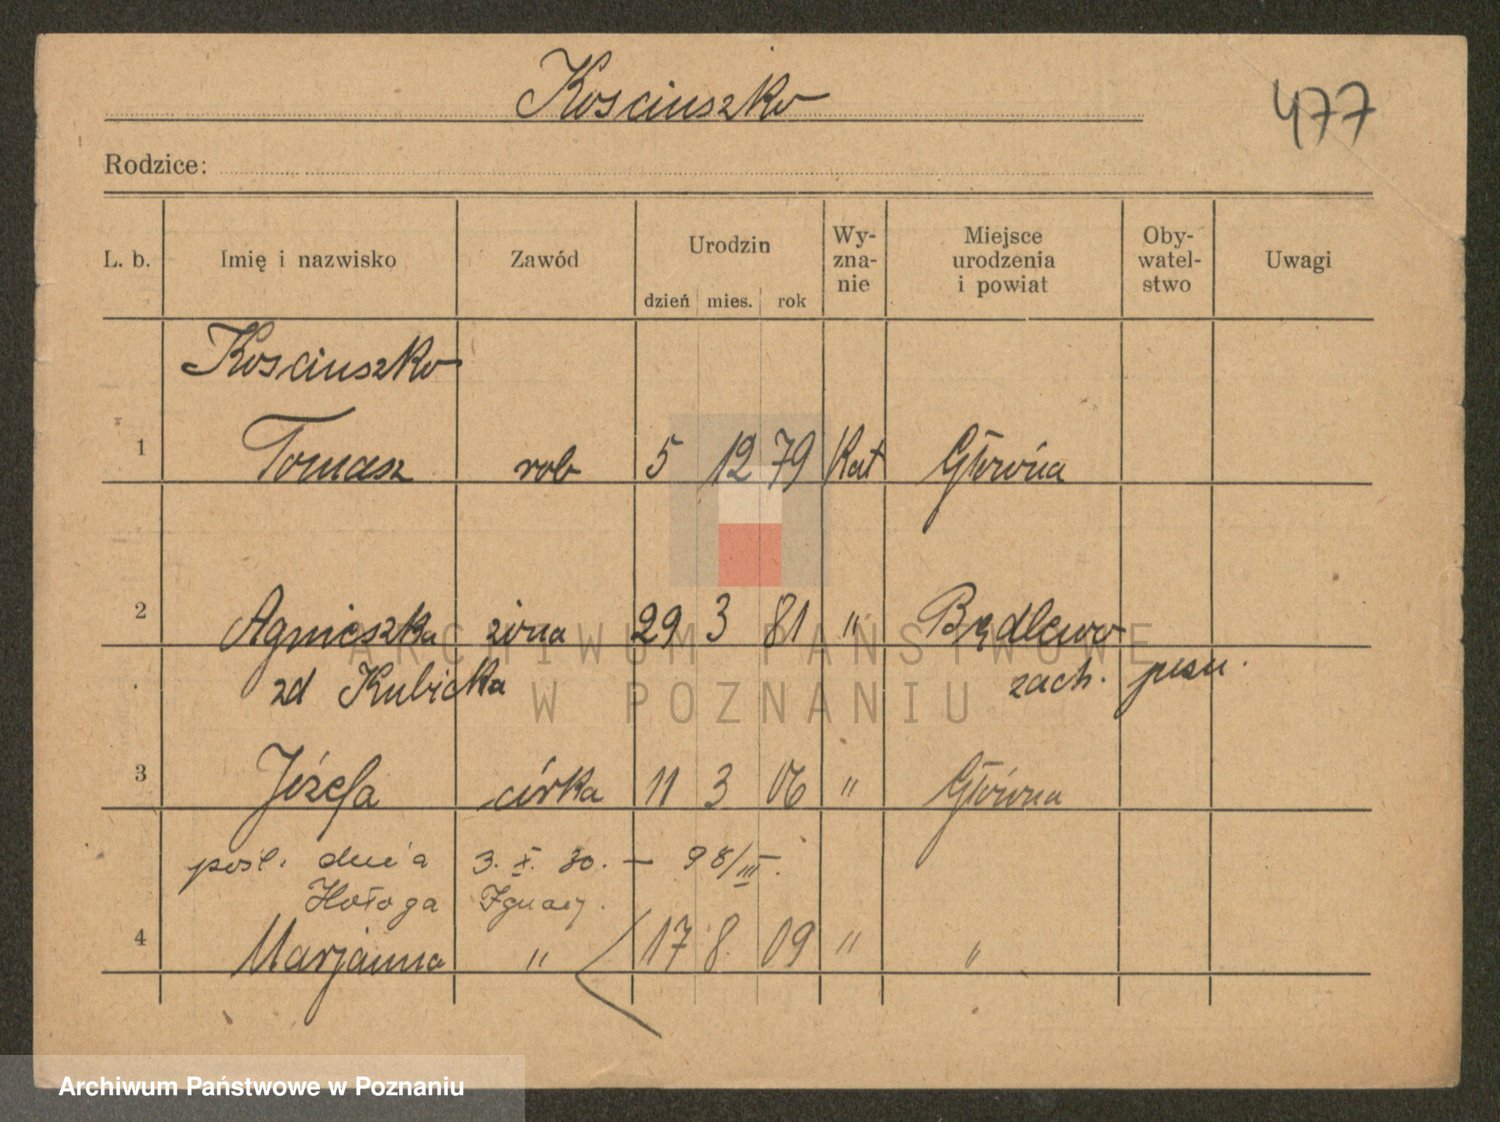 Kosciuszko
477
Rodzice:
L. b. Imię i nazwisko Zawód Urodzin dzień mies. rok Wy-zna-nie Miejsce urodzenia i powiat Oby-watel-stwo Uwagi
Kosciuszko
1 Tomasz rob 5 12 79 Kat Główna
2 Agnieszka żona 29 3 81 " Będlewo
zd Kubicka zach. pozn.
3 Józefa córka 11 3 06 " Główna
pośl. dnia 3. X. 30. — 98/III.
Hołoga Ignacy.
4 Marjanna " 17 8. 09 " "
ARCHIWUM PAŃSTWOWE
W POZNANIU
Archiwum Państwowe w Poznaniu